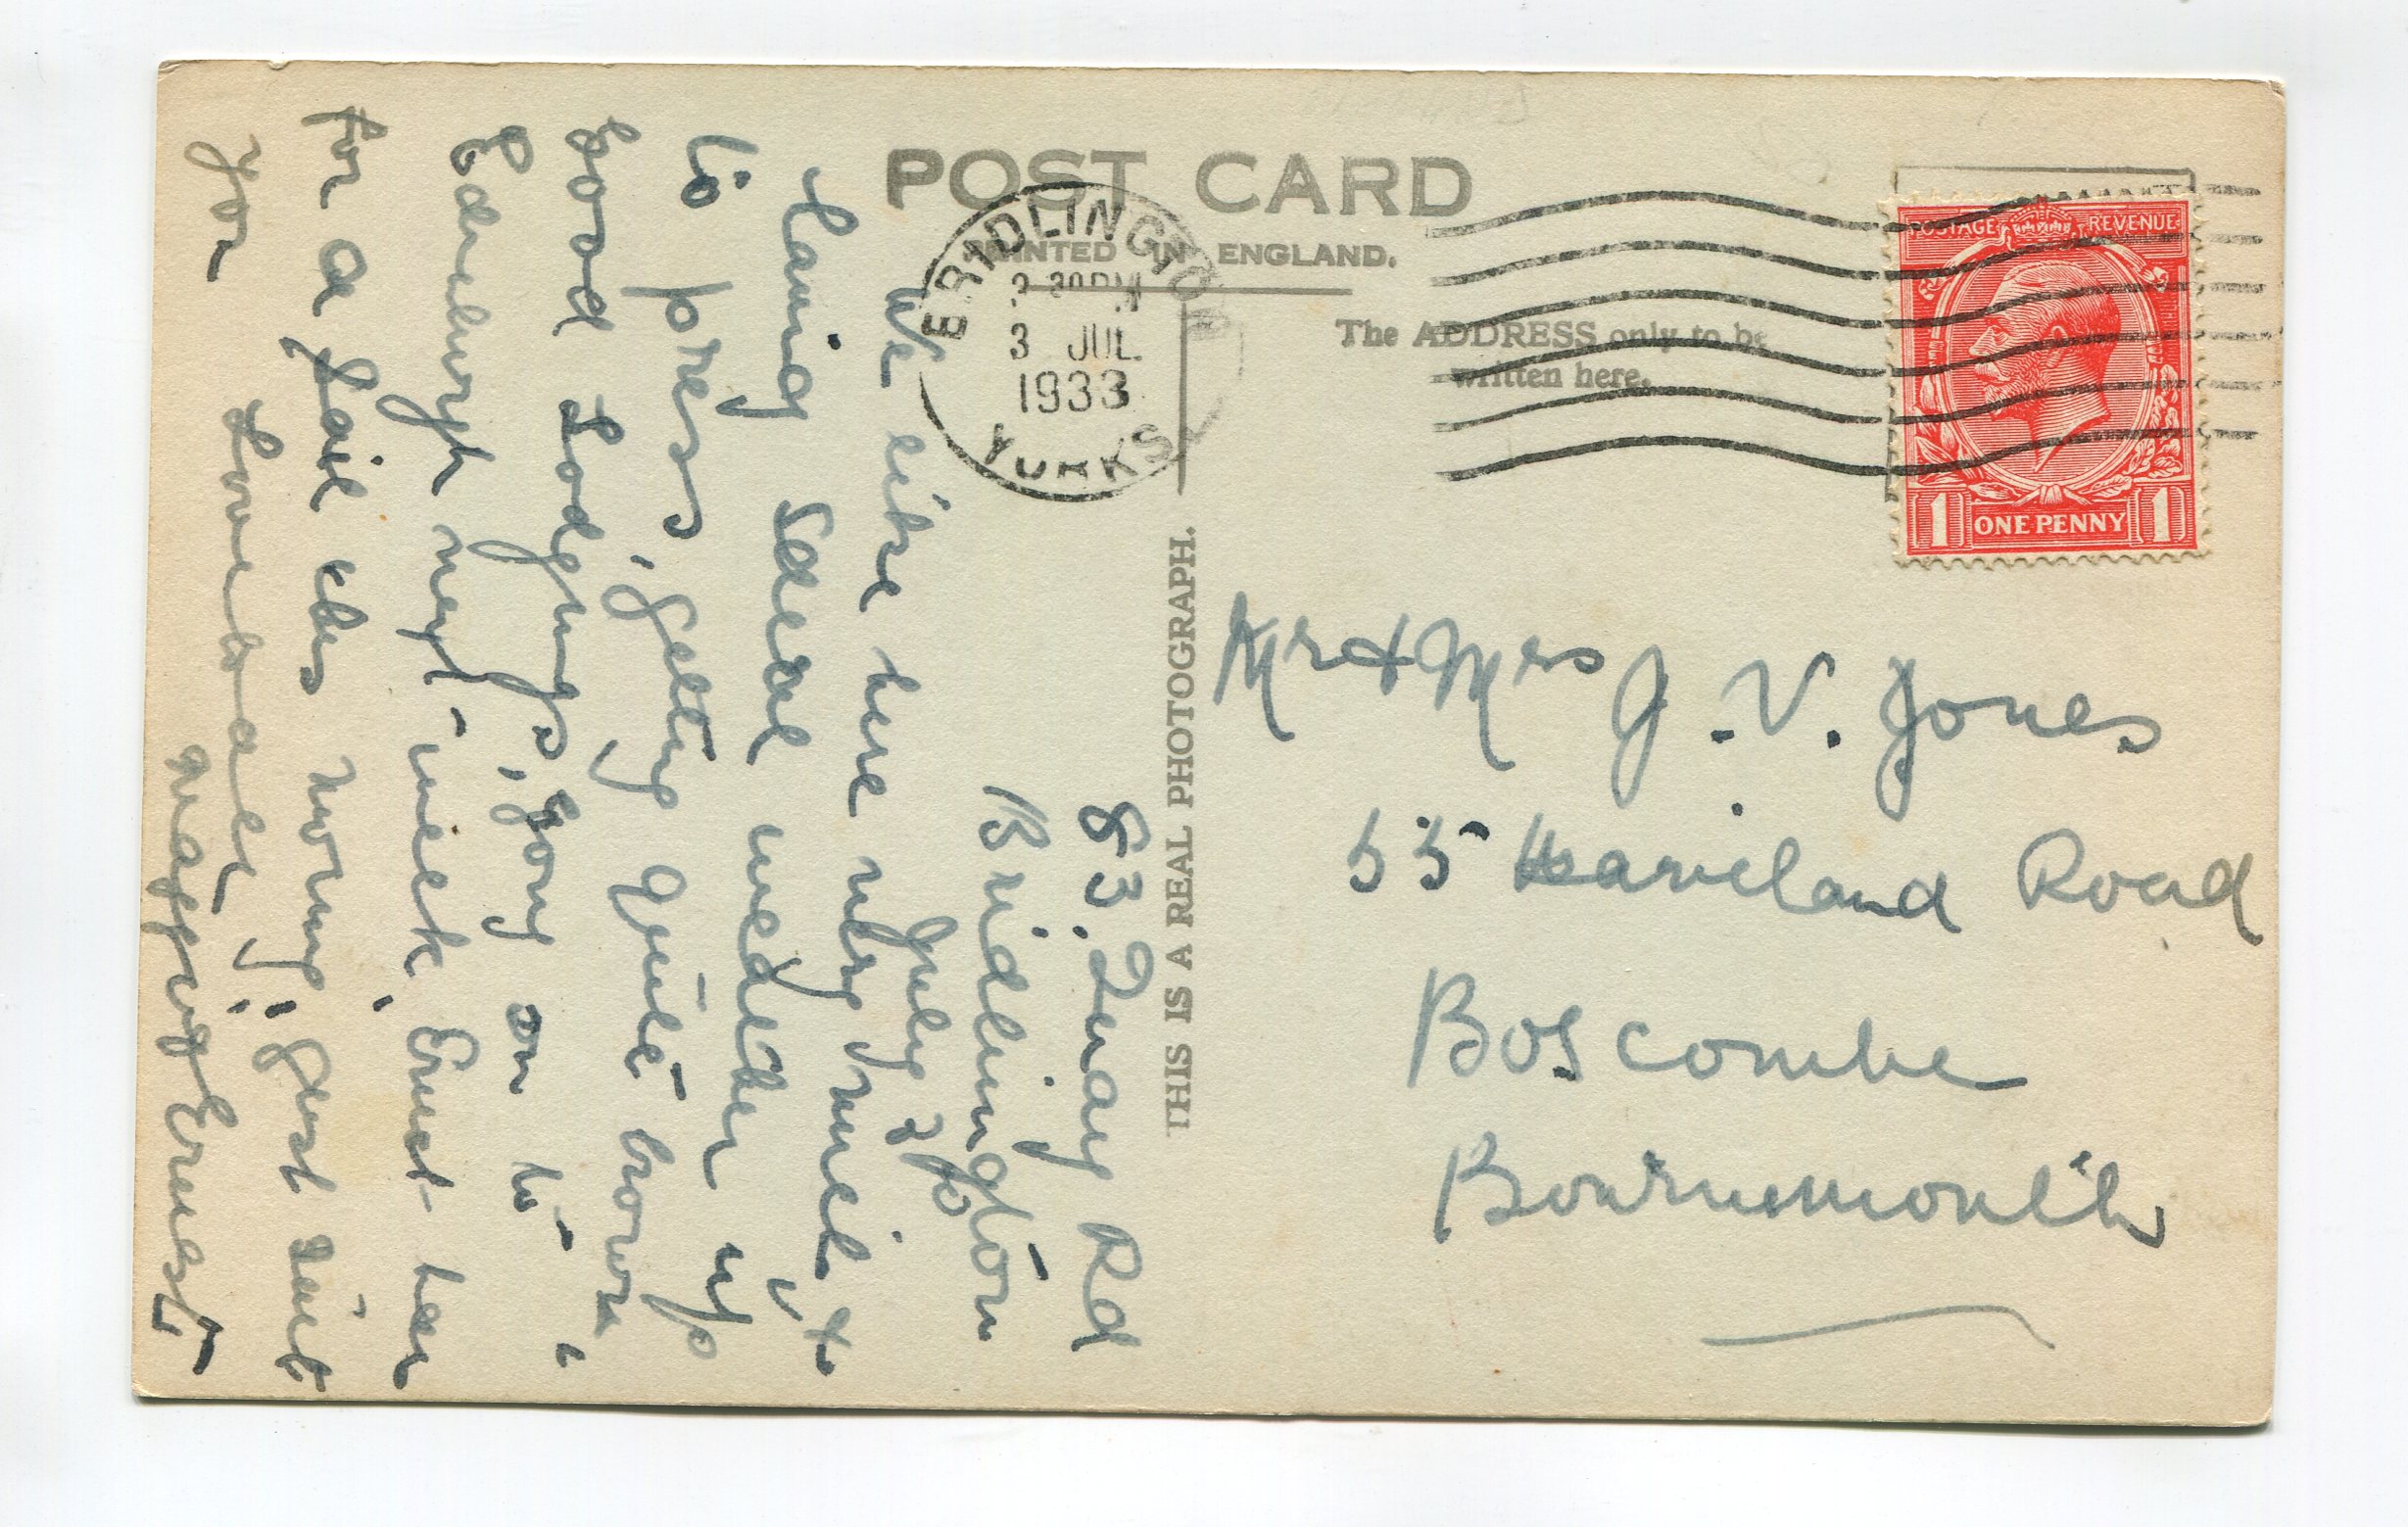 POST CARD
PRINTED IN ENGLAND.
The ADDRESS only to be
written here.
THIS IS A REAL PHOTOGRAPH.
BRIDLINGTON
2 30 PM
3 JUL
1933
YORKS
POSTAGE REVENUE
1 ONE PENNY 1
Mr & Mrs J. V. Jones
55 Haviland Road
Boscombe
Bournemouth
83 Quay Rd
Bridlington
July 3rd
We like here very much &
having ideal weather up
to press, getting quite brown,
good Lodgings, going on to
Edinburgh next week, Ernest has
for a sail this morning, just suit
you Love to all
Maggie & Ernest